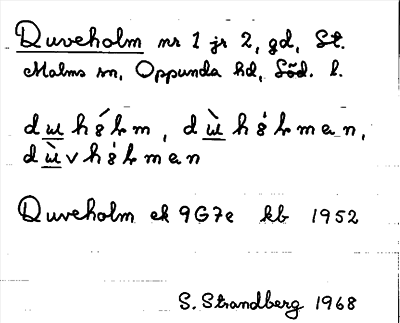 Duveholm nr 1 jr 2, gd, St.
Malms sn, Oppunda hd, Söd. l.
du̲hɞ́lm, dù̲hɞ̍lmen,
dù̲vhɞ̍lmen
Duveholm ek 9G7e kb 1952
S. Strandberg 1968